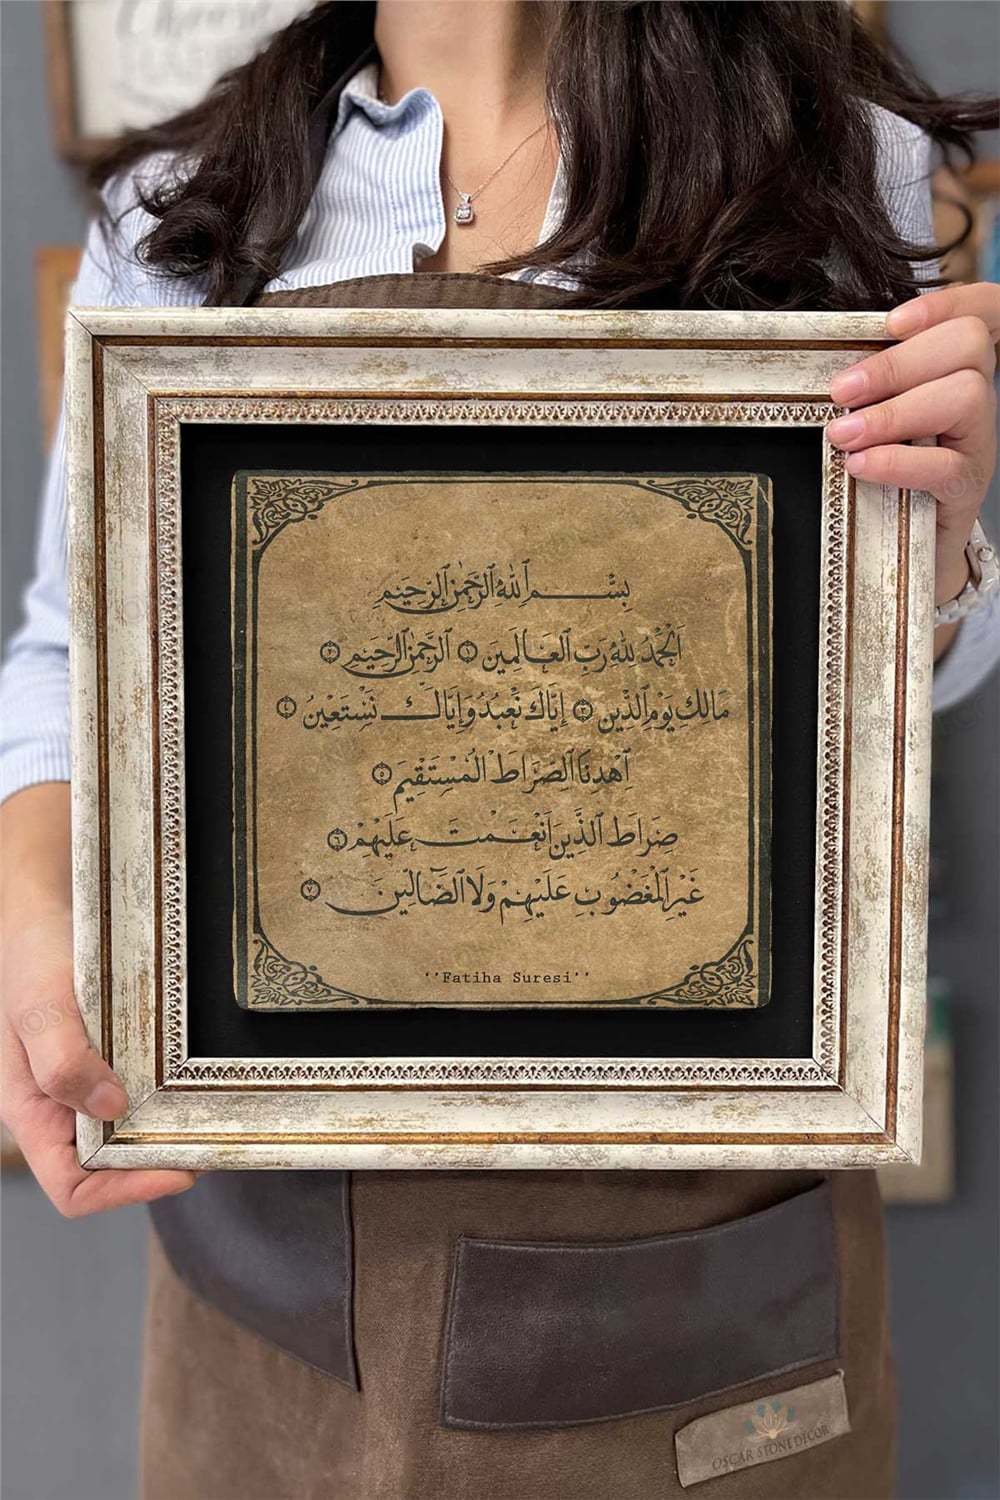 بِسْمِ ٱللّٰهِ ٱلرَّحْمٰنِ ٱلرَّحِيمِ
ٱَلْحَمْدُ لِلّٰهِ رَبِّ ٱلْعَالَمِينَ ١ ٱلرَّحْمٰنِ ٱلرَّحِيمِ ٢
مَالِكِ يَوْمِ ٱلدِّينِ ٣ إِيَّاكَ نَعْبُدُ وَإِيَّاكَ نَسْتَعِينُ ٤
ٱهْدِنَا ٱلصِّرَاطَ ٱلْمُسْتَقِيمَ ٥
صِرَاطَ ٱلَّذِينَ أَنْعَمْتَ عَلَيْهِمْ ٦
غَيْرِ ٱلْمَغْضُوبِ عَلَيْهِمْ وَلَا ٱلضَّآلِّينَ ٧
‘’Fatiha Suresi’’
OSCAR STONE DECOR